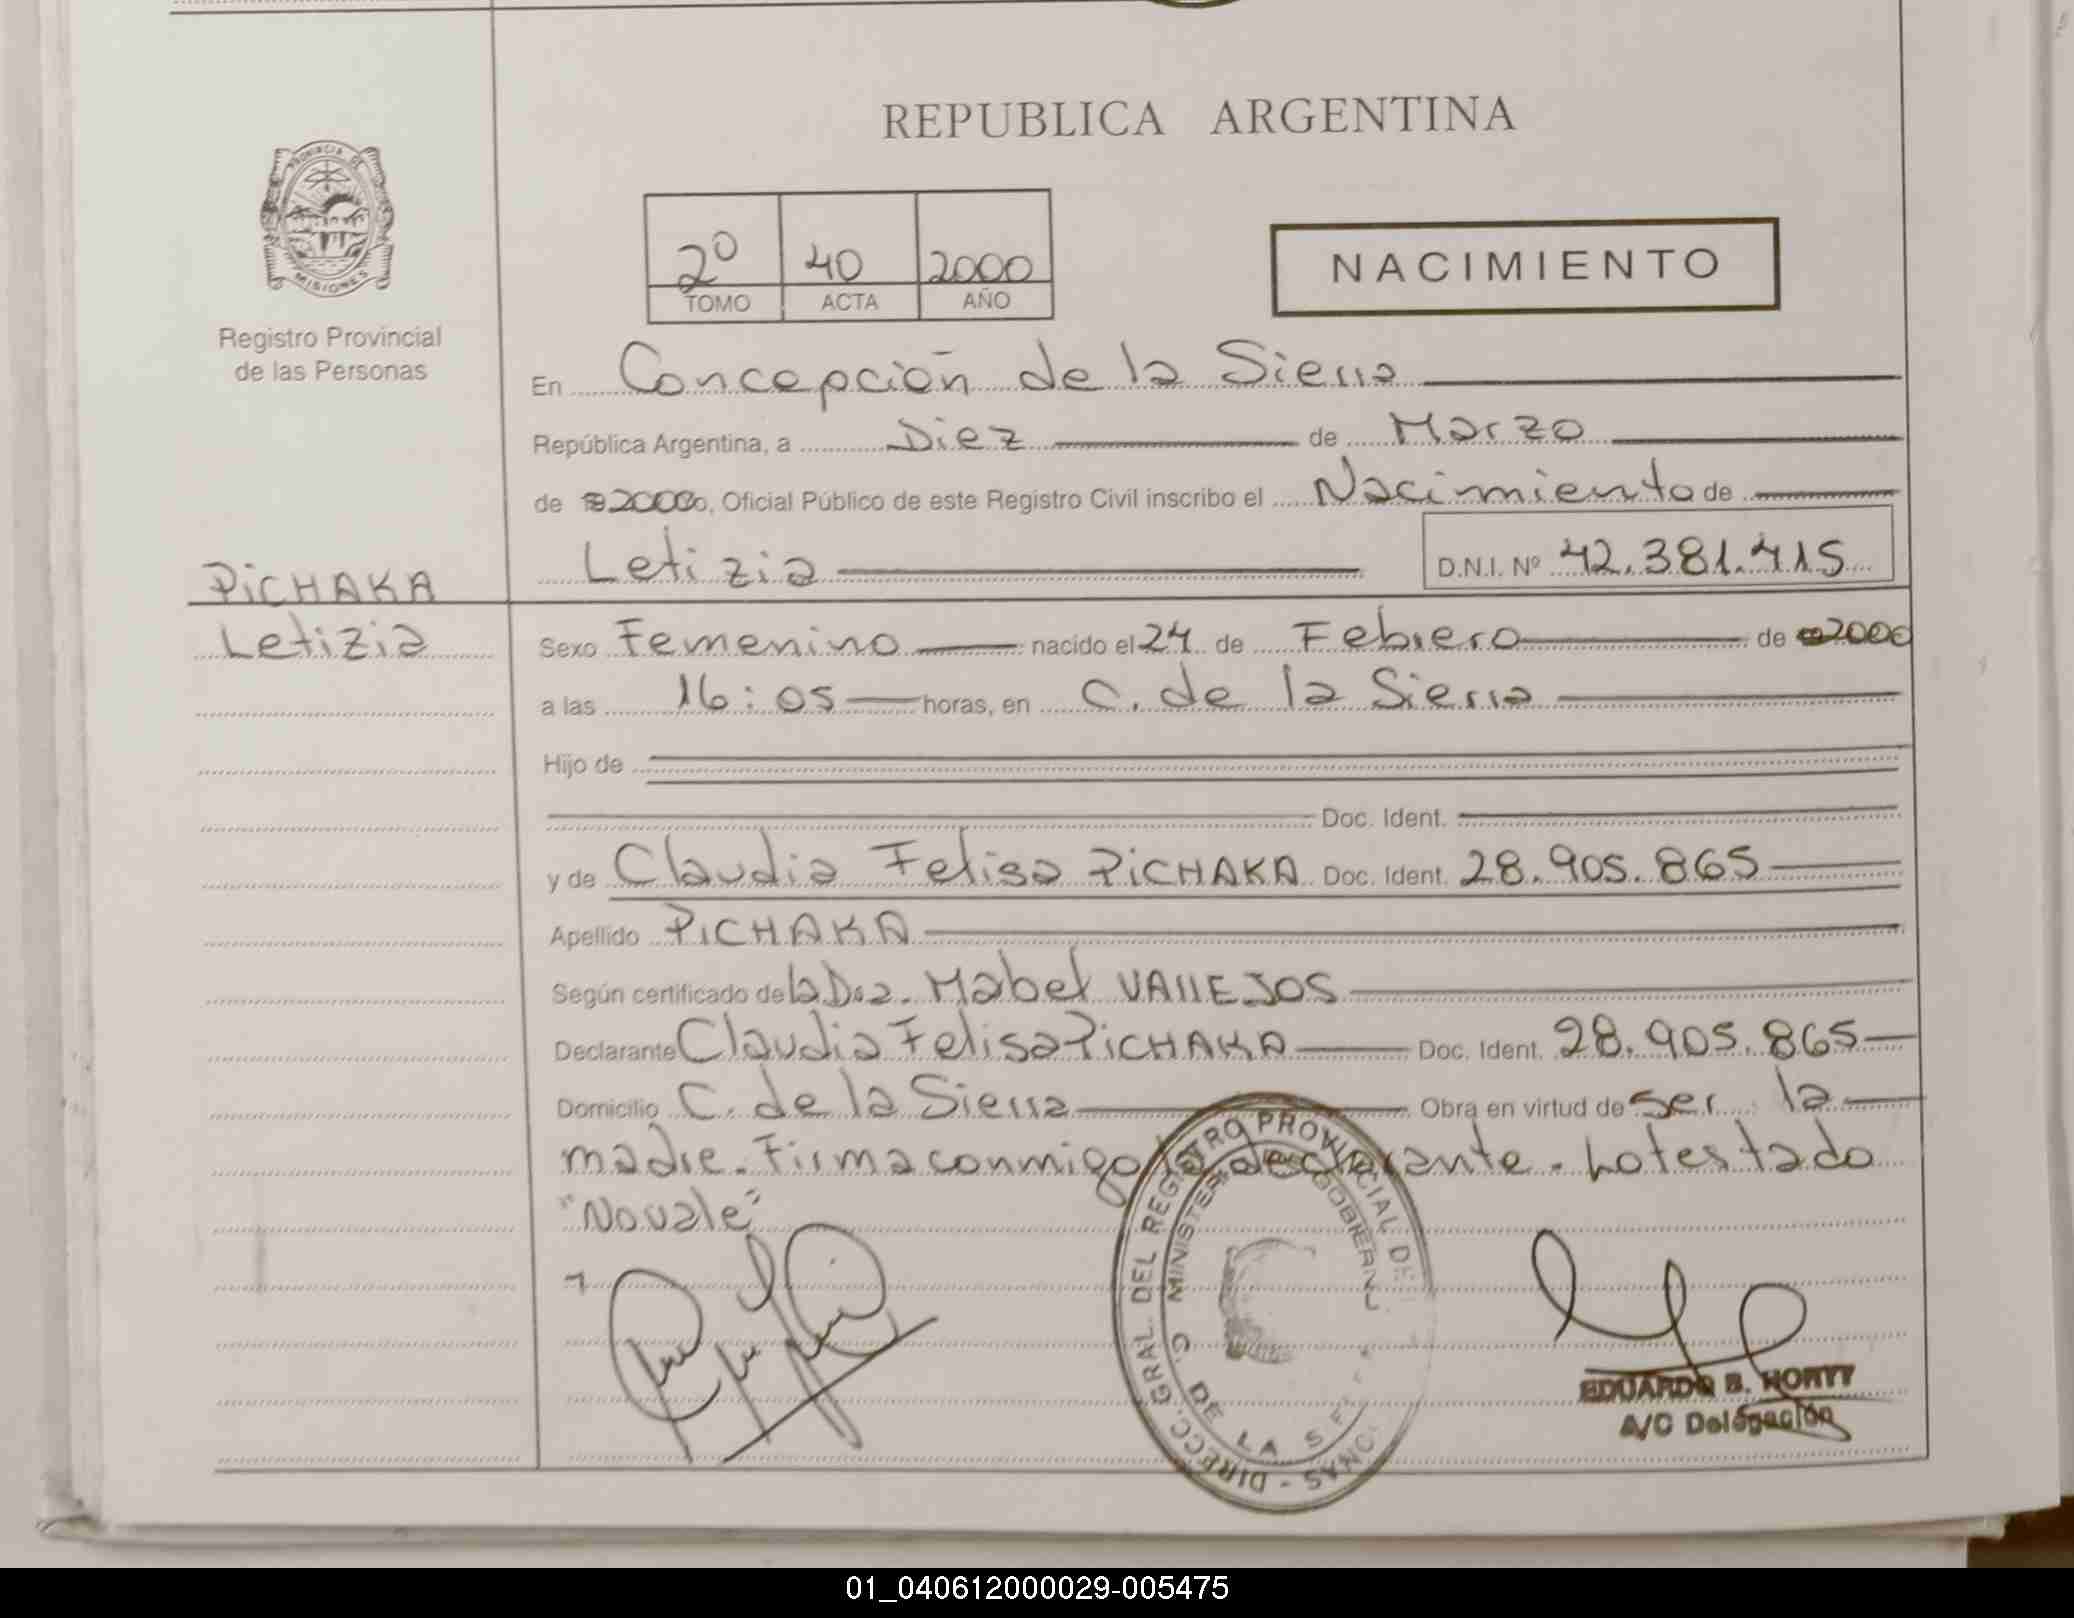 REPUBLICA ARGENTINA
PROVINCIA DE
MISIONES
Registro Provincial
de las Personas
2º 40 2000
TOMO ACTA AÑO
NACIMIENTO
En Concepción de la Sierra
República Argentina, a Diez de Marzo
de 2000, Oficial Público de este Registro Civil inscribo el Nacimiento de
Letizia D.N.I. Nº 42.381.415
PiCHAKA
Letizia
Sexo Femenino nacido el 24 de Febrero de 2000
a las 16:05 horas, en C. de la Sierra
Hijo de
Doc. Ident.
y de Claudia Felisa PiCHAKA Doc. Ident. 28.905.865
Apellido PiCHAKA
Según certificado de la Dra. Mabel VAllEJOS
Declarante Claudia Felisa PiCHAKA Doc. Ident. 28.905.865
Domicilio C. de la Sierra Obra en virtud de ser la
madre. Firma conmigo la declarante. Lo testado
"No vale"
DIRECC. GRAL. DEL REGISTRO PROVINCIAL DE
MINISTER GOBIERN
C. DE LA S
EDUARDO B. HORTT
A/C Delegación
01_040612000029-005475